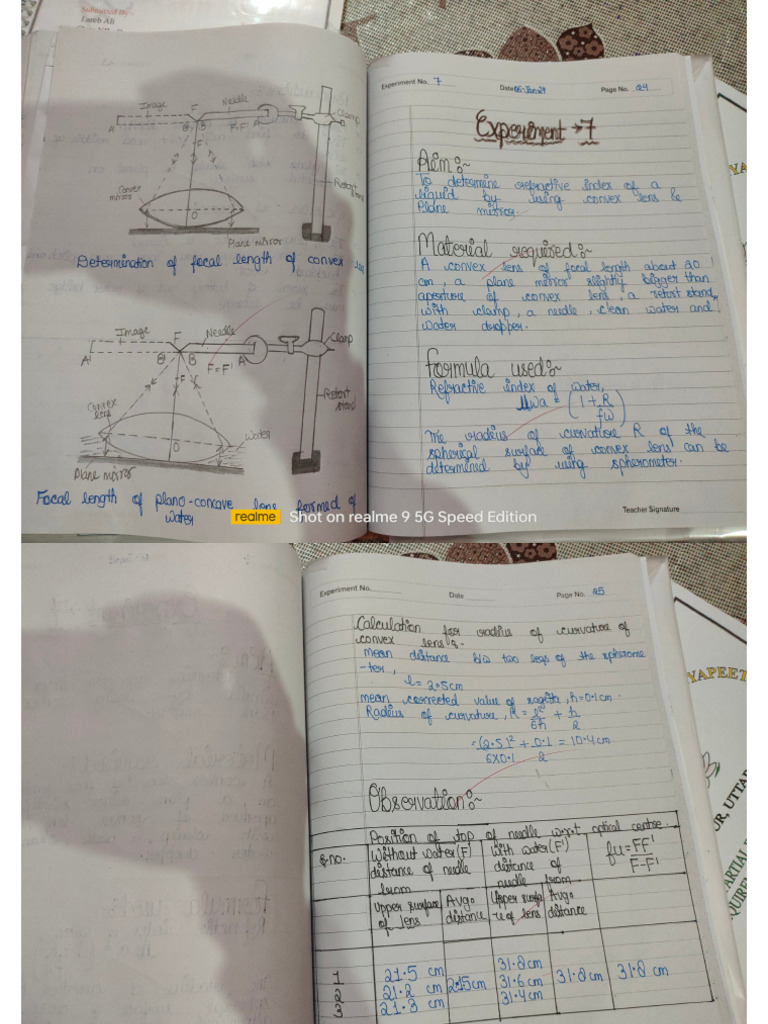 Submitted By
Tareb Ali
Image
F
Needle
Clamp
A'
B' B
F=F' A
F
Convex
mirror
O
Retort
stand
Plane mirror
Determination of focal length of convex lens
Image
F
Needle
Clamp
A'
B' B
A
F=F'
F
Retort
stand
Convex
lens
O
Water
Plane mirror
Focal length of plano-concave lens formed of
water
Experiment No. 7
Date 06-Jan-24
Page No. 24
Experiment → 7
Aim:~
To determine refractive index of a
liquid by using convex lens &
Plane mirror.
Material required:~
A convex lens of focal length about 20
cm, a plane mirror slightly bigger than
aperture of convex lens, a retort stand
with clamp, a needle, clean water and
water dropper.
Formula used:~
Refractive index of water,
μwa = (1+R/fw)
The radius of curvature R of the
spherical surface of convex lens can be
determined by using spherometer.
Teacher Signature
realme Shot on realme 9 5G Speed Edition
Experiment No.
Date
Page No. 25
Calculation for radius of curvature of
convex lens:-
mean distance b/w two legs of the spherome
-ter,
l = 2.5cm
mean corrected value of sagita, h=0.1cm.
Radius of curvature, R = l²/6h + h/2
= (2.5)²/6×0.1 + 0.1/2 = 10.4cm
Observation:~
S.no.
Position of top of needle w.r.t optical centre.
Without water (F)
distance of needle
from
With water (F')
distance of
needle from
fw = FF'/F-F'
Upper surface
of lens
Avg.
distance
Upper surfa
ce of lens
Avg.
distance
1 21.5 cm 31.8cm
2 21.2 cm 2.15cm 31.6cm 31.8cm 31.8 cm
3 21.3 cm 31.4cm
YAPEET
UR, UTTAR